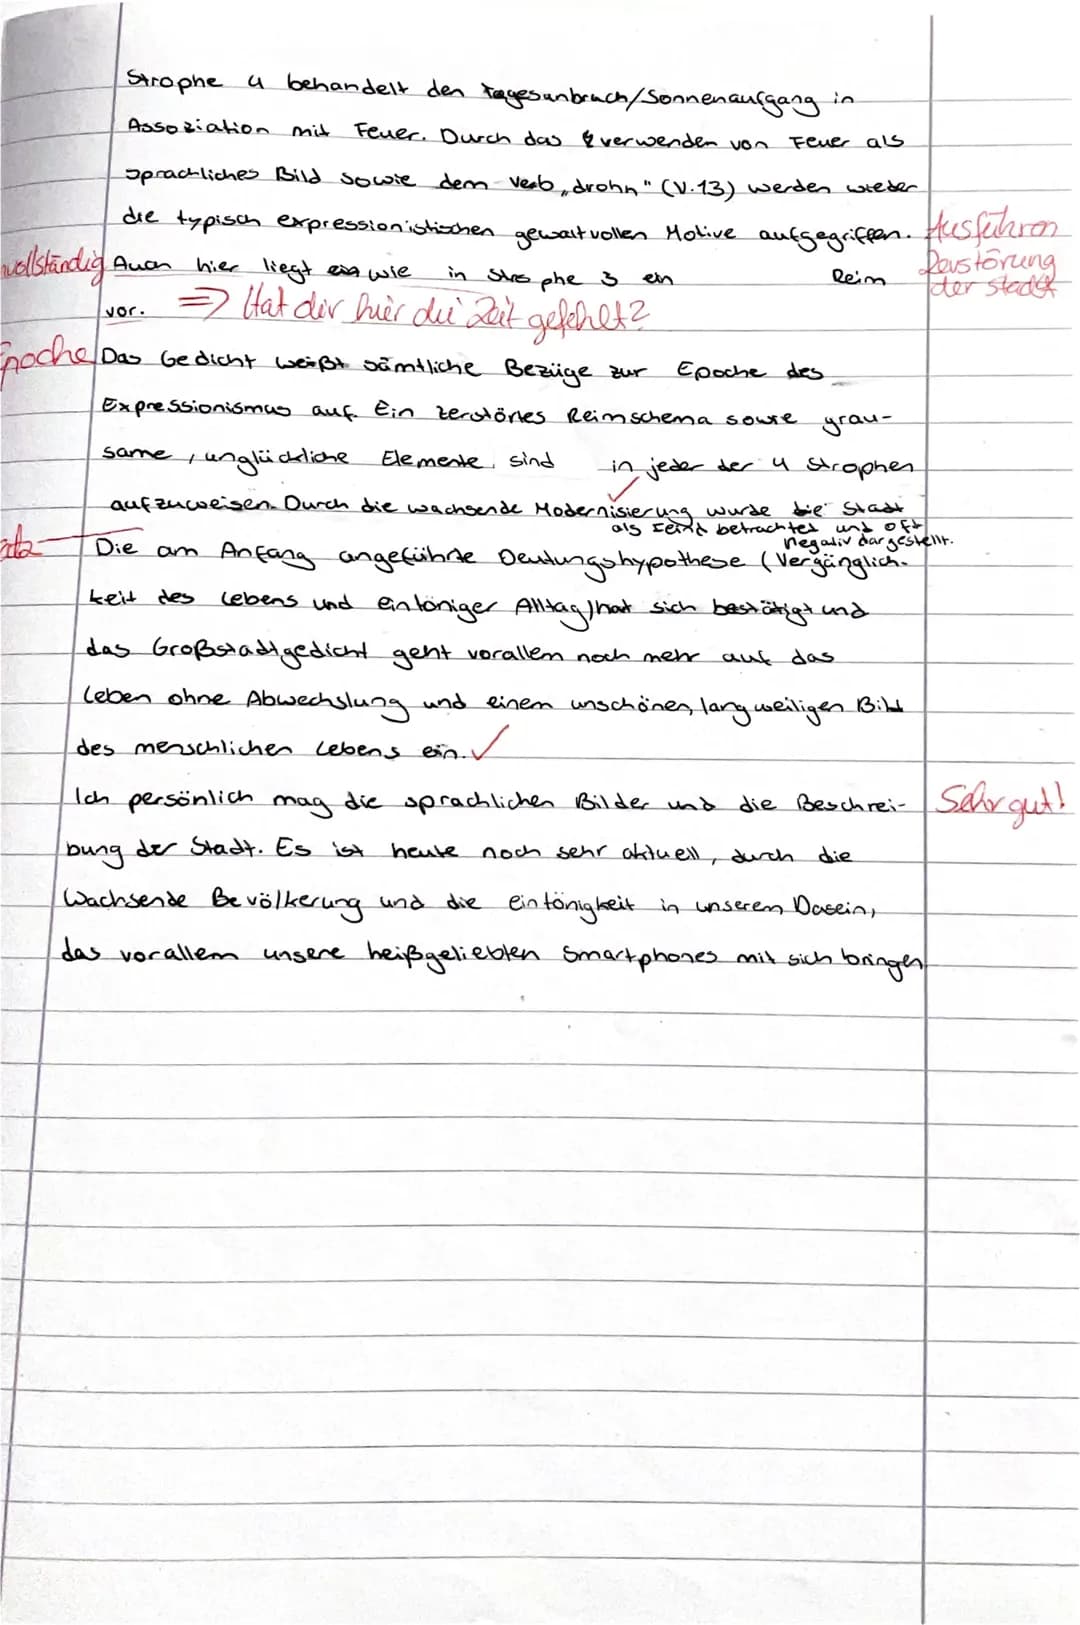 Strophe 4 behandelt den Tagesanbruch/Sonnenaufgang in
Assoziation mit Feuer. Durch das verwenden von Feuer als
sprachliches Bild sowie dem Verb „drohn" (V.13) werden wieder
die typisch expressionistischen gewaltvollen Motive aufgegriffen.
Ausführen
Zerstörung
der Stadt
vollständig
Auch hier liegt wie in Strophe 3 ein Reim
vor. => Hat dir hier die Zeit gefehlt?
Epoche
Das Gedicht weißt sämtliche Bezüge zur Epoche des
Expressionismus auf. Ein zerstörtes Reimschema sowie grau-
same, unglückliche Elemente sind in jeder der 4 Strophen
aufzuweisen. Durch die wachsende Modernisierung wurde die Stadt
als Feind betrachtet und oft
negativ dargestellt.
Die am Anfang angeführte Deutungshypothese (Vergänglich-
keit des Lebens und eintöniger Alltag) hat sich bestätigt und
das Großstadtgedicht geht vorallem noch mehr auf das
Leben ohne Abwechslung und einem unschönen, langweiligen Bild
des menschlichen Lebens ein. ✓
Ich persönlich mag die sprachlichen Bilder und die Beschrei-
Sehr gut!
bung der Stadt. Es ist heute noch sehr aktuell, durch die
Wachsende Bevölkerung und die eintönigkeit in unserem Dasein,
das vorallem unsere heißgeliebten Smartphones mit sich bringen